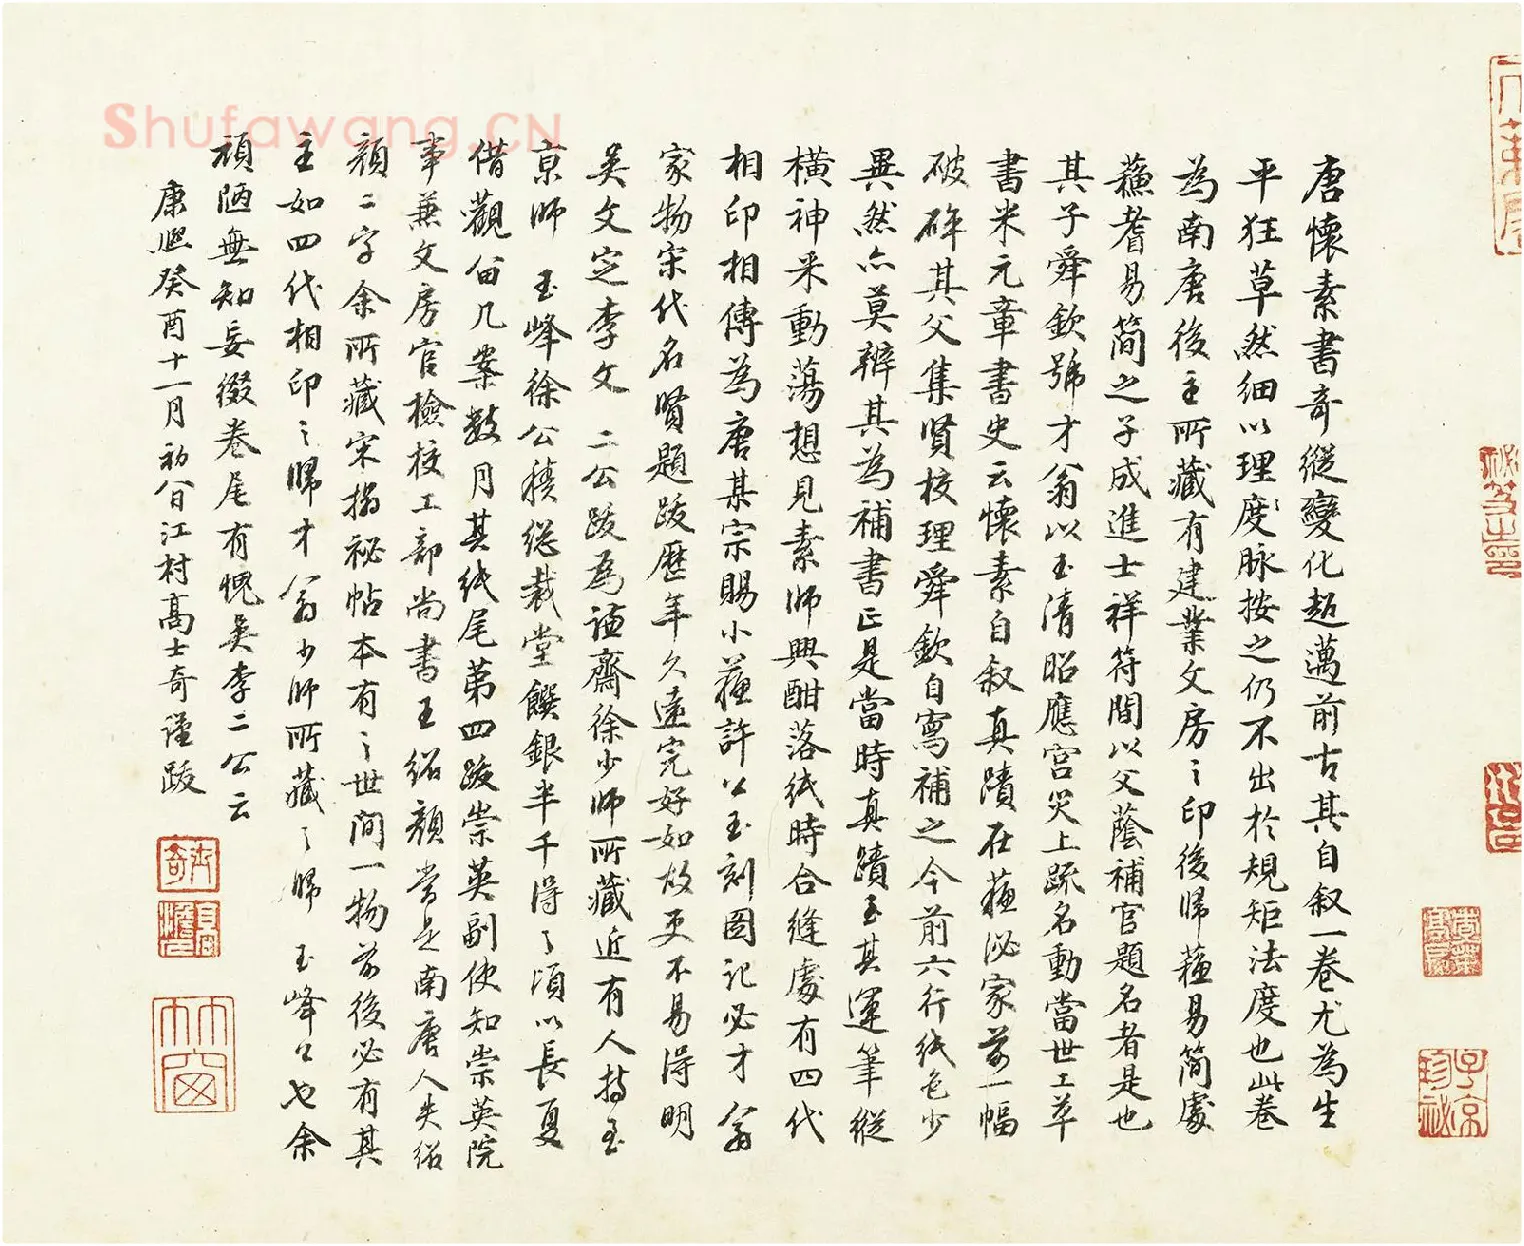 唐懷素書奇縱變化超邁前古其自叙一卷尤為生
平狂草然細以理度脉按之仍不出於規矩法度也此卷
為南唐後主所藏有建業文房之印後歸蘇易簡處
蘇耆易簡之子成進士祥符間以父蔭補官題名者是也
其子舜欽號才翁以玉清昭應宮災上疏名動當世工草
書米元章書史云懷素自叙真蹟在蘇泌家前一幅
破碎其父集賢校理舜欽自寫補之今前六行紙色少
異然亦莫辨其為補書正是當時真蹟玉其運筆縱
橫神采動蕩想見素師興酣落紙時合縫處有四代
相印相傳為唐某宗賜小蘇許公玉刻圖記必才翁
家物宋代名賢題跋歷年久遠完好如故更不易得明
吳文定李文 二公跋為謙齋徐少師所藏近有人持至
京師 玉峰徐公積總裁堂饌銀半千得之頃以長夏
借觀留几案數月其紙尾第四跋崇英副使知崇英院
事兼文房官檢校工部尚書王紹顏當是南唐人失紹
顏二字余所藏宋搨祕帖本有之世間一物前後必有其
主如四代相印之歸才翁少師所藏之歸 玉峰公也余
頑陋無知妄綴卷尾有愧吳李二公云
康熙癸酉十一月初八日江村高士奇謹跋
士奇
竹窗
子京
珍祕
Shufawang.CN